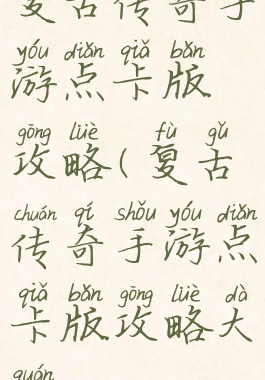 复古传奇手
yóu diǎn qiǎ bǎn
游点卡版
gōng lüè fù gǔ
攻略(复古
chuán qí shǒu yóu diǎn
传奇手游点
qiǎ bǎn gōng lüè dà
卡版攻略大
quán